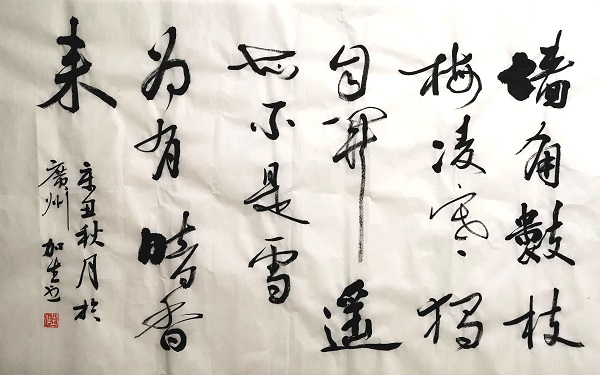 墙角數枝
梅凌寒獨
自開遥
知不是雪
为有暗香
来
辛丑秋月於
廣州 加生也